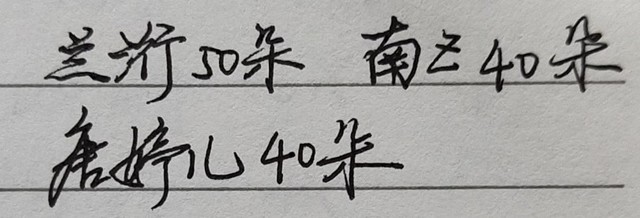 兰浒50朵 南乙40朵
唐婷儿40朵